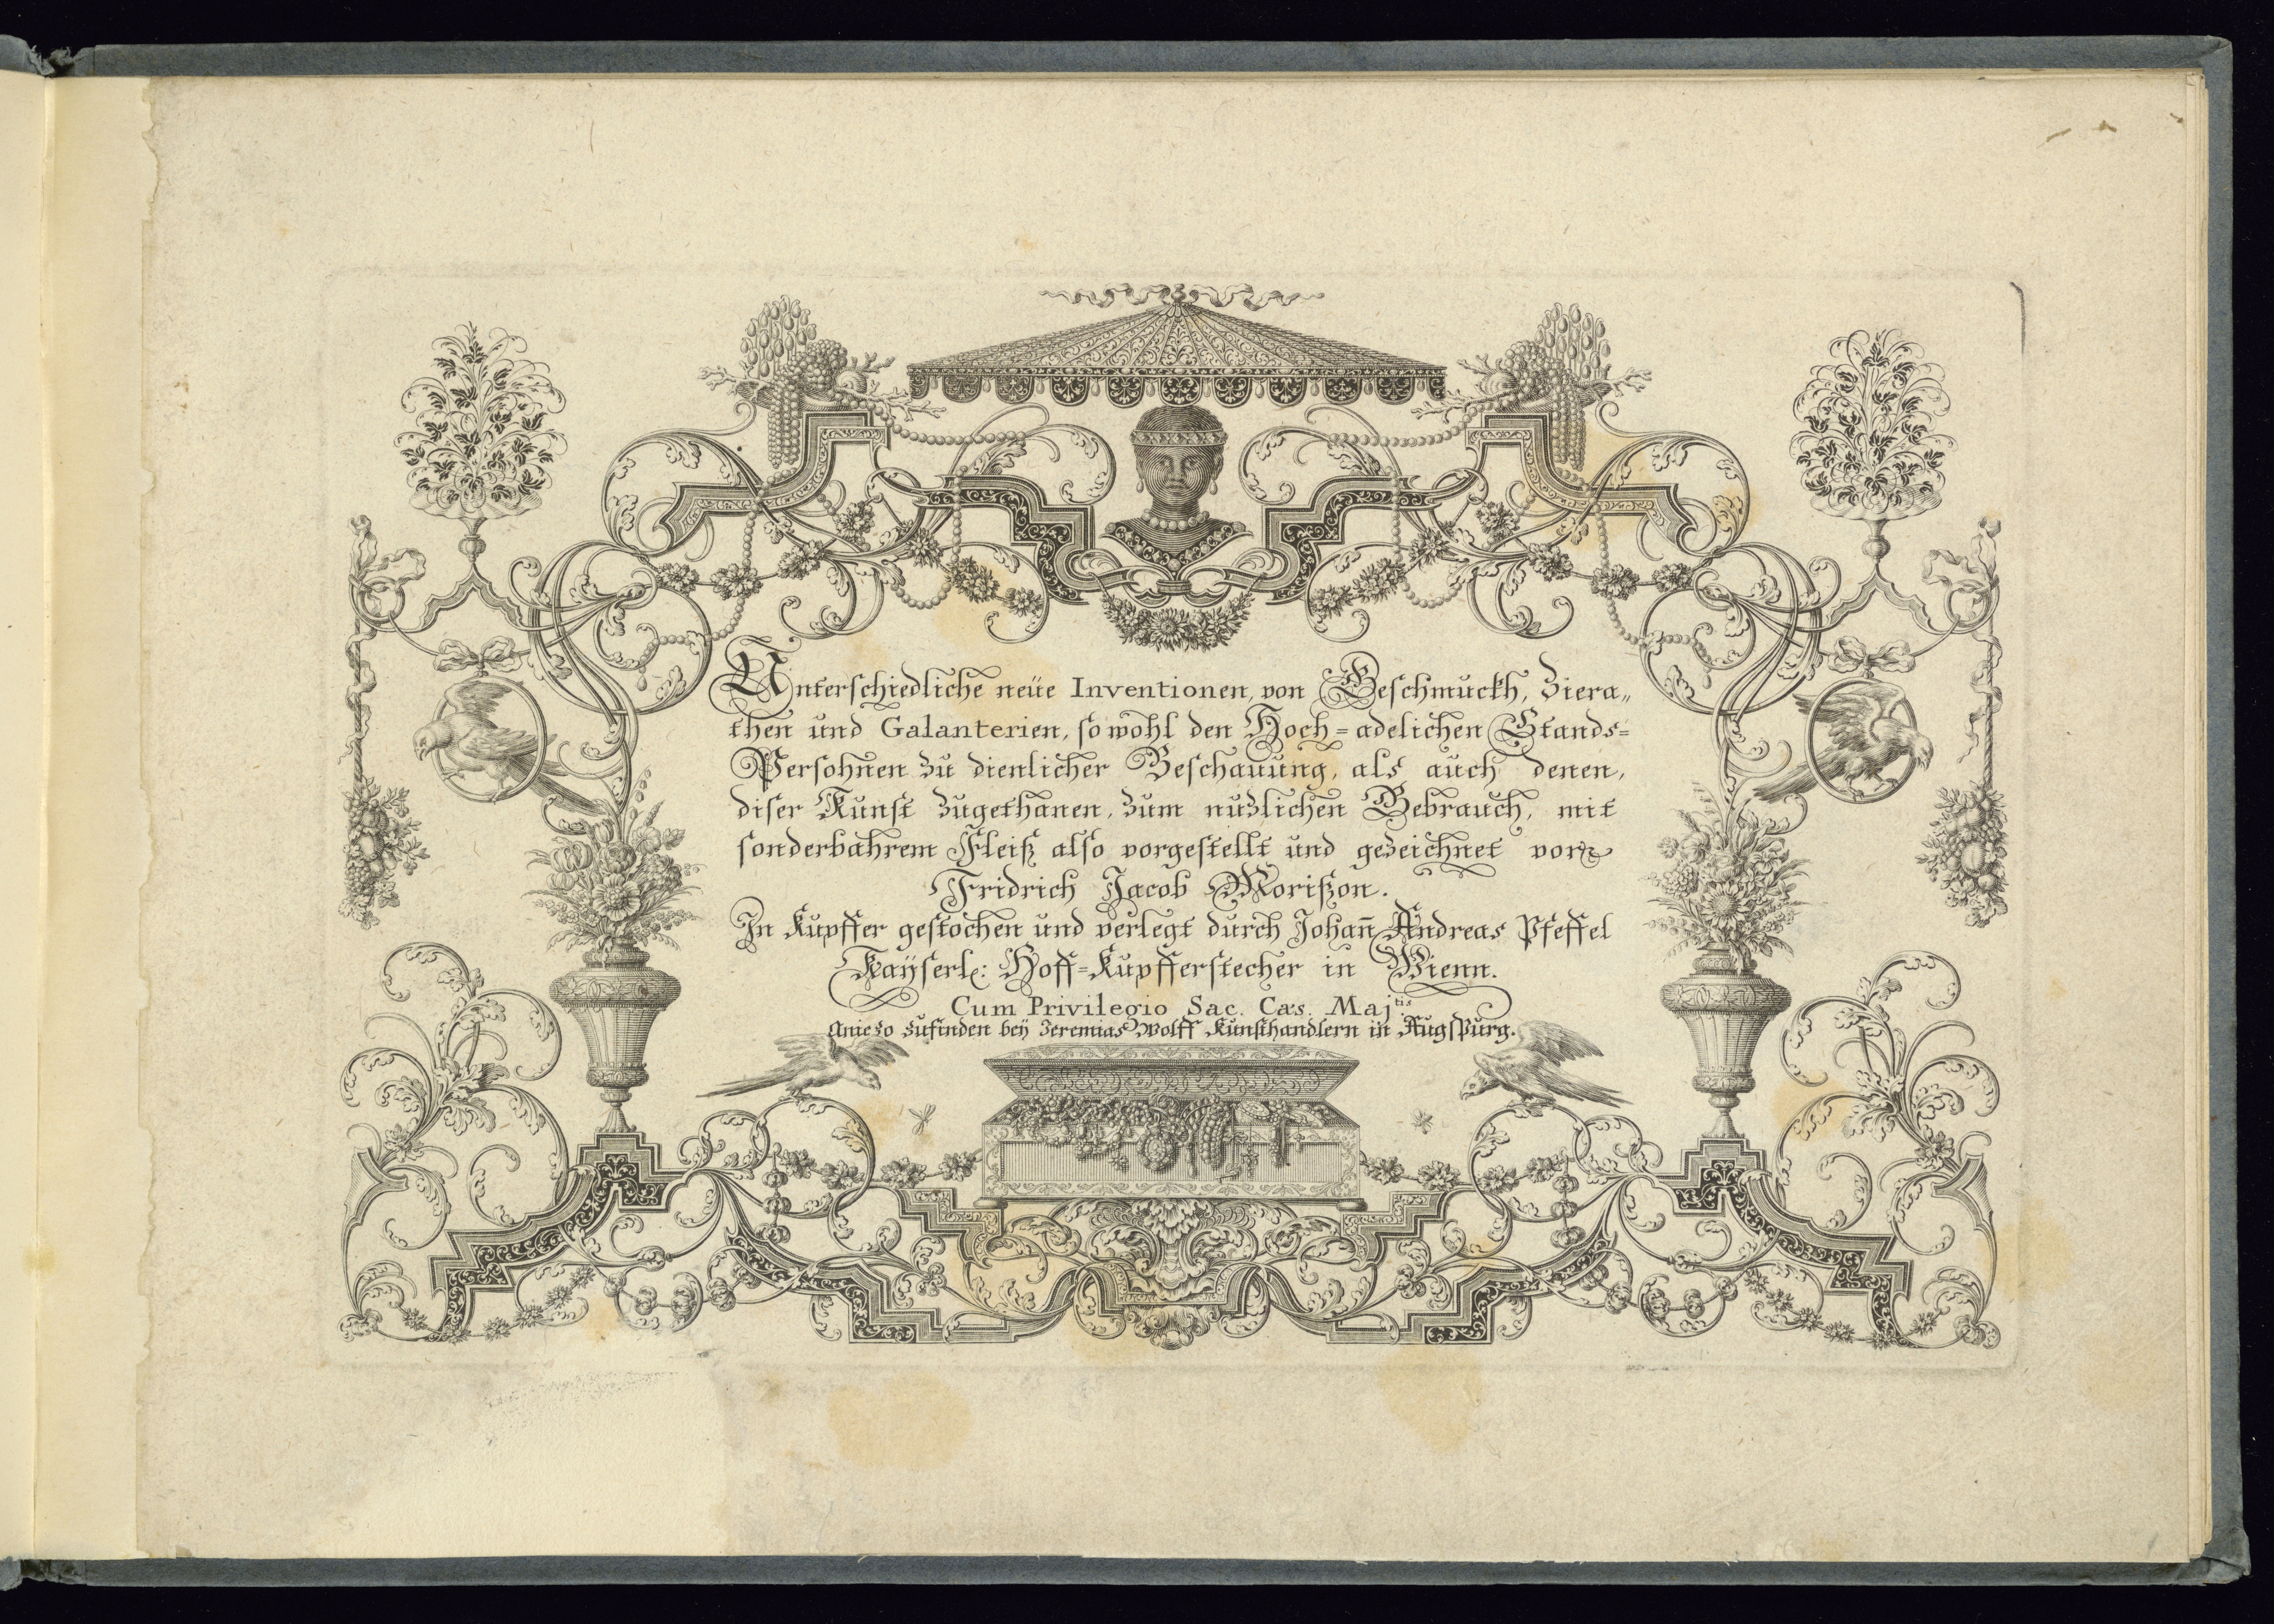 Unterschiedliche neüe Inventionen, von Geschmuckh, Ziera„
then und Galanterien, so wohl den Hoch=adelichen Stands=
Persohnen zu dienlicher Beschauung, als auch denen,
diser Kunst zugethanen, zum nuzlichen Gebrauch, mit
sonderbahrem Fleiß also vorgestellt und gezeichnet von
Fridrich Jacob Morißon.
In Kupffer gestochen und verlegt durch Johañ Andreas Pfeffel
Kaÿserl: Hoff=Kupfferstecher in Wienn.
Cum Privilegio Sac. Cæs. Maj.tis
Aniezo zufinden beÿ Jeremias Wolff Kunsthandlern in Augspurg.